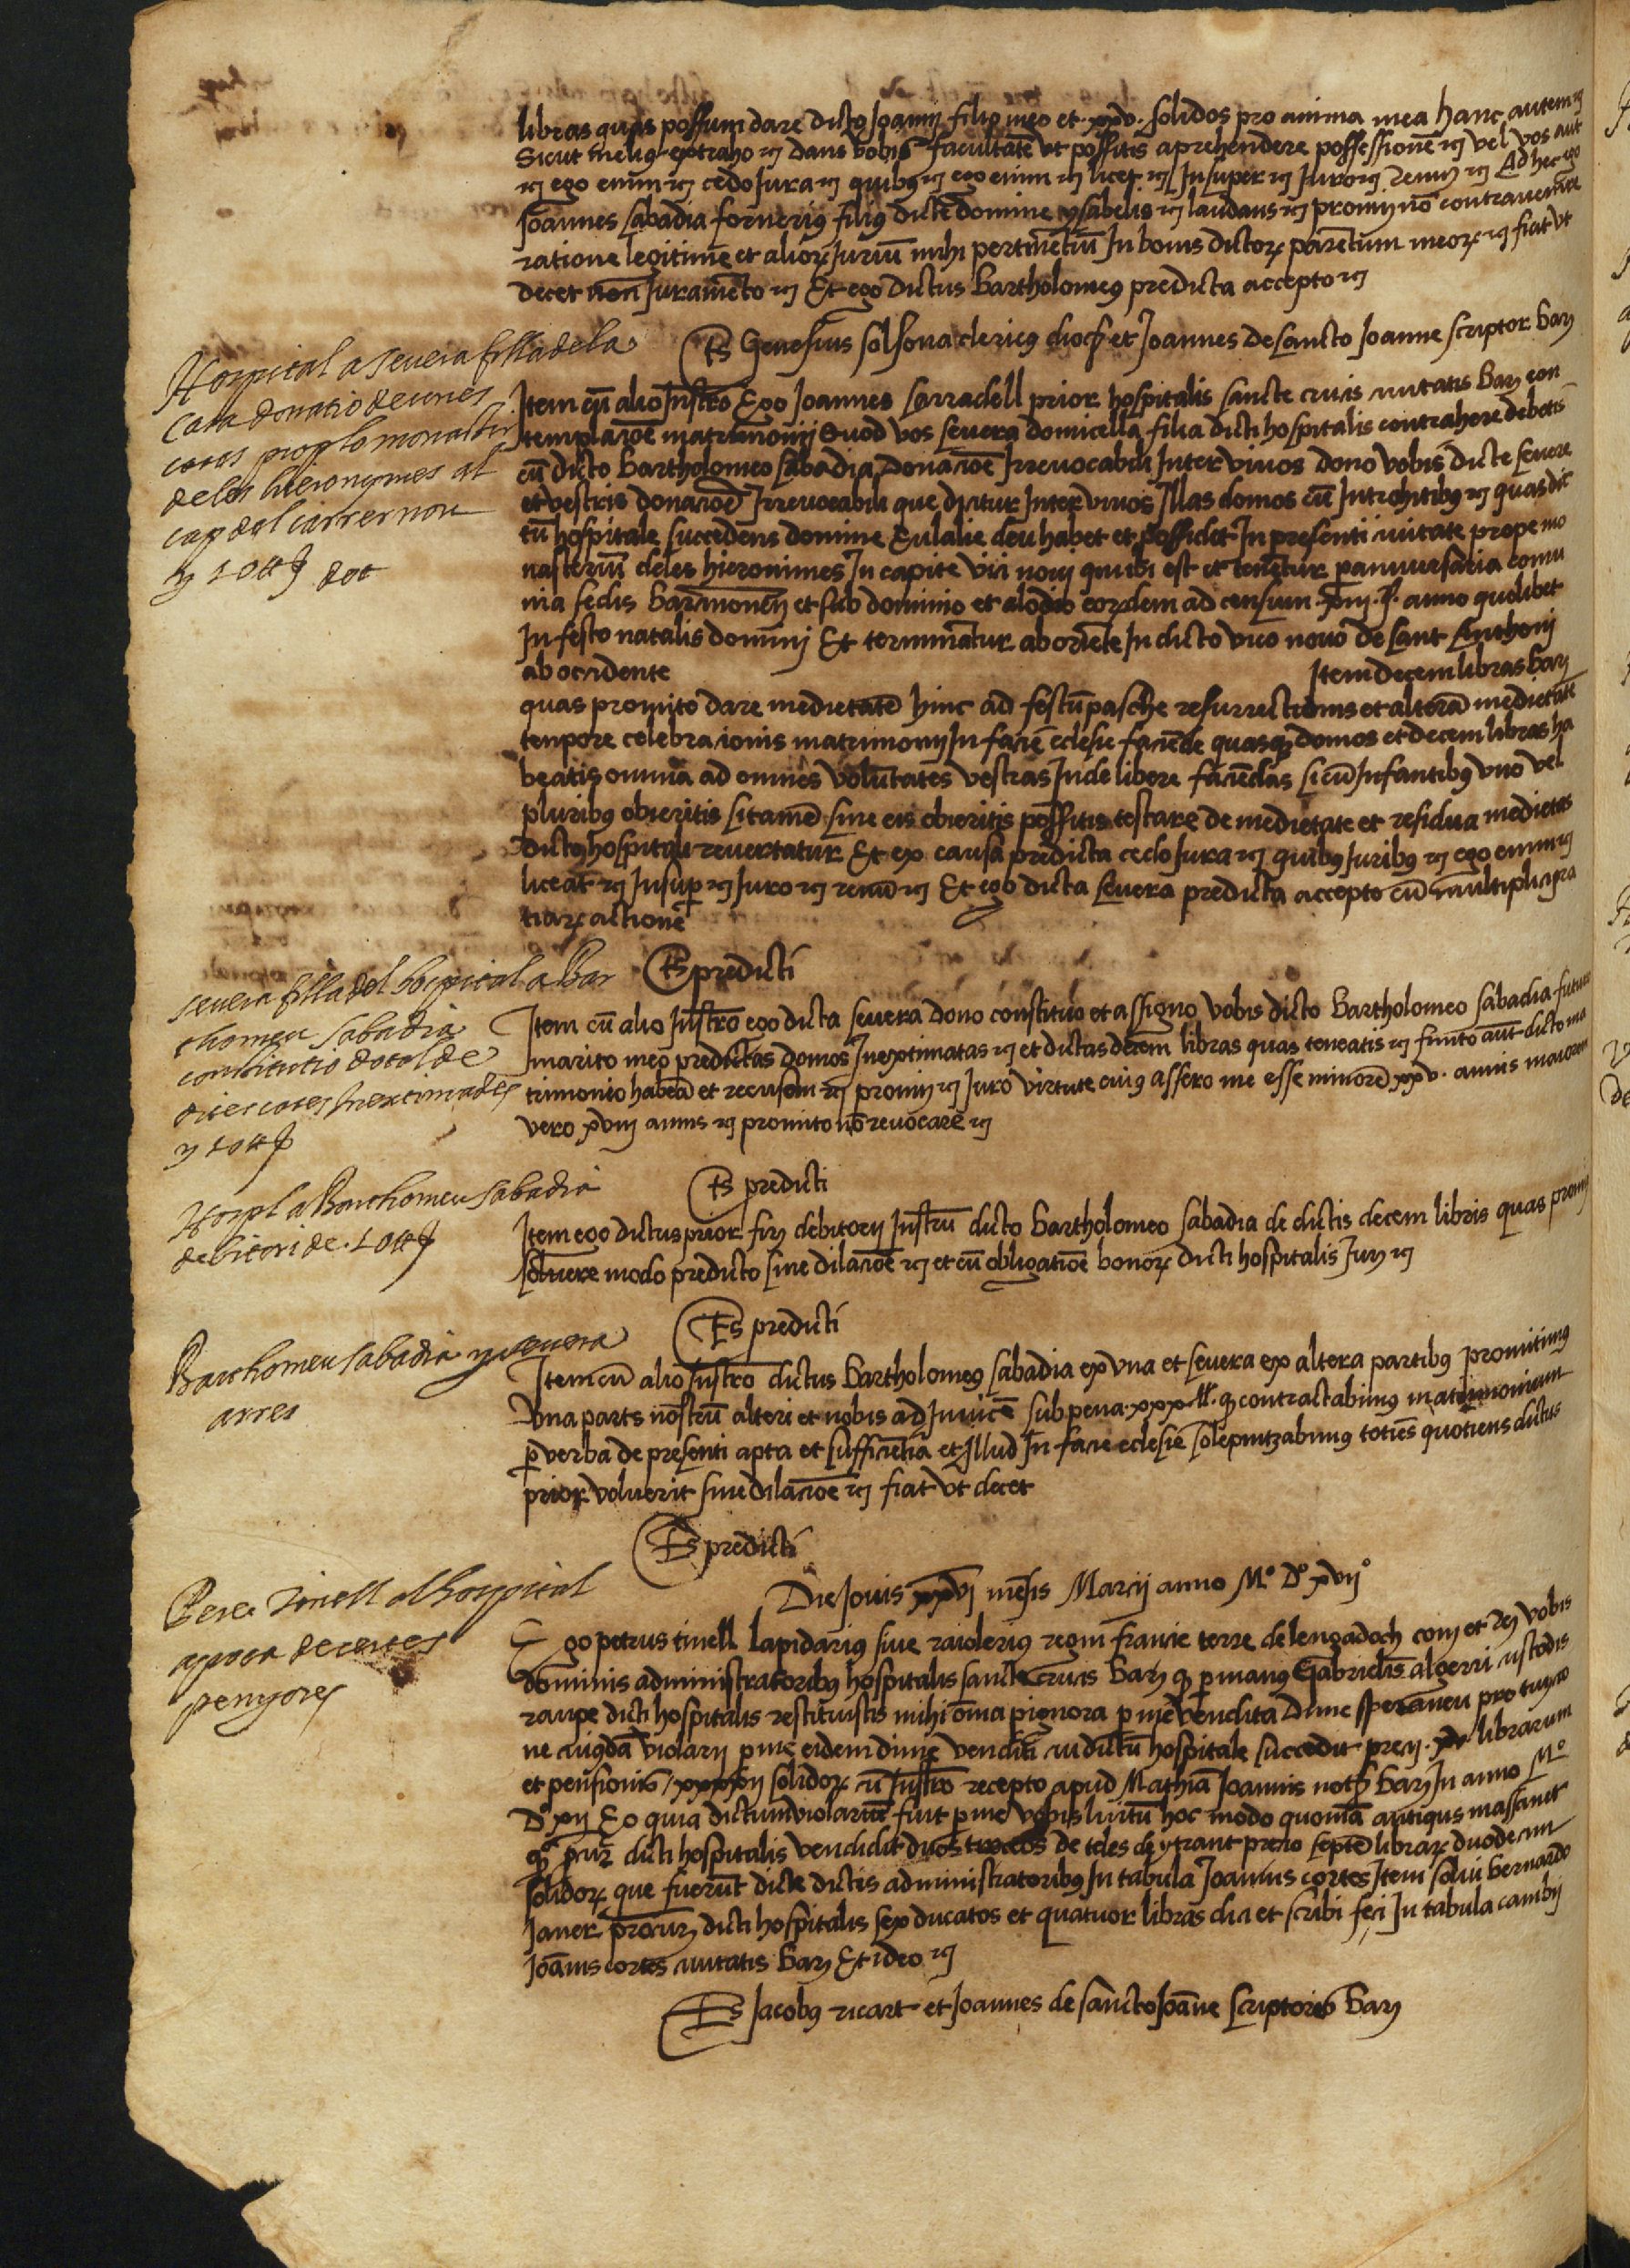 libras quas possum dare dicto Joanni filio meo et .xxv. solidos pro anima mea hanc autem rc
Sicut melius extraho rc dans vobis facultatē ut possitis aprehendere possessionē rc vel vos aut
rc ego enim rc cedo Jura rc quibus rc ego enim rc licet rc Insuper rc Juro rc renun rc Ad hec ego
Joannes sabadia fornerius filius dicte domine ysabelis rc laudans rc promij nō contravenire
ratione legitime et alioꝝ Juriū mihi pertinētiū In bonis dictoꝝ parētum meoꝝ rc fiat ut
decet non Juramēto rc Et ego dictus Bartholomeus predicta accepto rc
Ts Genesius solsona clericus et Joannes de sancto Joanne scriptor barẏ
Hospital a severa filla de la
casa donatio de unes
cases prop lo monastir
de les hieronymes al
cap del carrer nou
y 10 ₶ dot
Item cū alio Instr̄o Ego Joannes sarradell prior hospitalis sancte crucis civitatis barẏ con
templacioē matrimonij Quod vos severa domicella filia dicti hospitalis contrahere debetis
cū dicto Bartholomeo sabadia Donacioē Irrevocabili Inter vivos dono vobis dicte severe
et vestris donacioē Irrevocabili que dicitur Inter vivos Illas domos cū Introhitibus rc quas dic
tū hospitale succedens domine Eulalie deu habet et possidet In presenti civitate prope mo
nasteriū deles hieronimes In capite vici novi qui ibi est et tenētur p anniversaria comu
nia sedis barcinoneñ et sub dominio et alodio eoꝝdem ad censum xviij. s̄. anno quolibet
In festo natalis domini Et terminātur ab oriēte In dicto vico novo de sant Anthoni
ab occidente Item decem libras barẏ
quas promito dare medietatē hinc ad festū pasche resurrectionis et alterā medietatē
tenpore celebracionis matrimonij In facie eclesie faciēde quasqȝ domos et decem libras ha
beatis omnia ad omnes volūtates vestras Inde libere faciēdas si cū Infantibus uno vel
pluribus obieritis si tamē sine eis obieritis possitis testare de medietate et residua medietas
dicto hospitali revertatur Et ex causa predicta cedo Jura rc quibus Juribus rc ego enim rc
liceāt rc Insuper rc Juro rc renū rc Et ego dicta severa predicta accepto cū multiplici gra
tiaꝝ actione
Ts predicti
severa filla del hospital a Bar
thomeu sabadia
constitutio dotal de
dites cases Inextimades
y 10 ₶
Item cū alio Instr̄o ego dicta severa dono constituo et assigno vobis dicto Bartholomeo sabadia futuro
marito meo predictas domos Inextimatas rc et dictas decem libras quas teneatis rc finito aūt dicto ma
trimonio habeā et recusem rc promij rc Juro virtute cuius assero me esse minorē xxv. annis maiorem
vero xviij annis rc promito nō revocare rc
Ts predicti
Hospl a Barthomeu sabadia
debitori de .10 ₶
Item ego dictus prior firẏ debitorij Instr̄ū dicto Bartholomeo sabadia de dictis decem libris quas promij
solvere modo predicto sine dilacioē rc et cū obligatioē bonoꝝ dicti hospitalis Jurẏ rc
Ts predicti
Barthomeu sabadia y severa
arres
Item cū alio Instr̄o dictus Bartholomeus sabadia ex una et severa ex altera partibus promitimus
Una parts nostrū alteri et nobis ad Invicē sub pena .xxx. ₶. qȝ contractabimus matrimonium
p verba de presenti apta et sufficiētia et Illud In facie eclesie solepnitzabimus totiēs quotiens dictus
prior voluerit sine dilacioē rc fiat ut decet
Ts predicti
Pere tinell al hospital
apoca de certes
penyores
Die Jovis xxvi mēsis Marcij anno Mº Dº xvijº
Ego petrus tinell lapidarius sive raiolerius regni francie terre de lengadoch confiteor et rẏ vobis
dominis administratoribus hospitalis sancte crucis barẏ qȝ p manus Gabrielis algerri custodis
raupe dicti hospitalis restituistis mihi oīa pignora p me vendita Dīne
ne cuiusdā violarij p me eidem dīne venditi cui dictū hospitale succedit precij librarum
et pensionis solidoꝝ cū Instr̄o recepto apud Mathiā Joannis notm̄ barẏ In anno Mº
Dº xij Eo quia dictum violariū fuit p me vobis luitū hoc modo quoniā antiqus massanet
qº pcur̄ dicti hospitalis vendidit duos trocos de teles de precio septē libraꝝ duodecim
solidoꝝ que fuerūt dicte dictis administratoribus In tabula Joannis cortes Item solui bernardo
Janer procurẏ dicti hospitalis sex ducatos et quatuor libras dici et scribi feci In tabula cambij
Joānis cortes civitatis barẏ Et ideo rc
Ts Jacobus ricart et Joannes de sancto Joāne scriptores barẏ